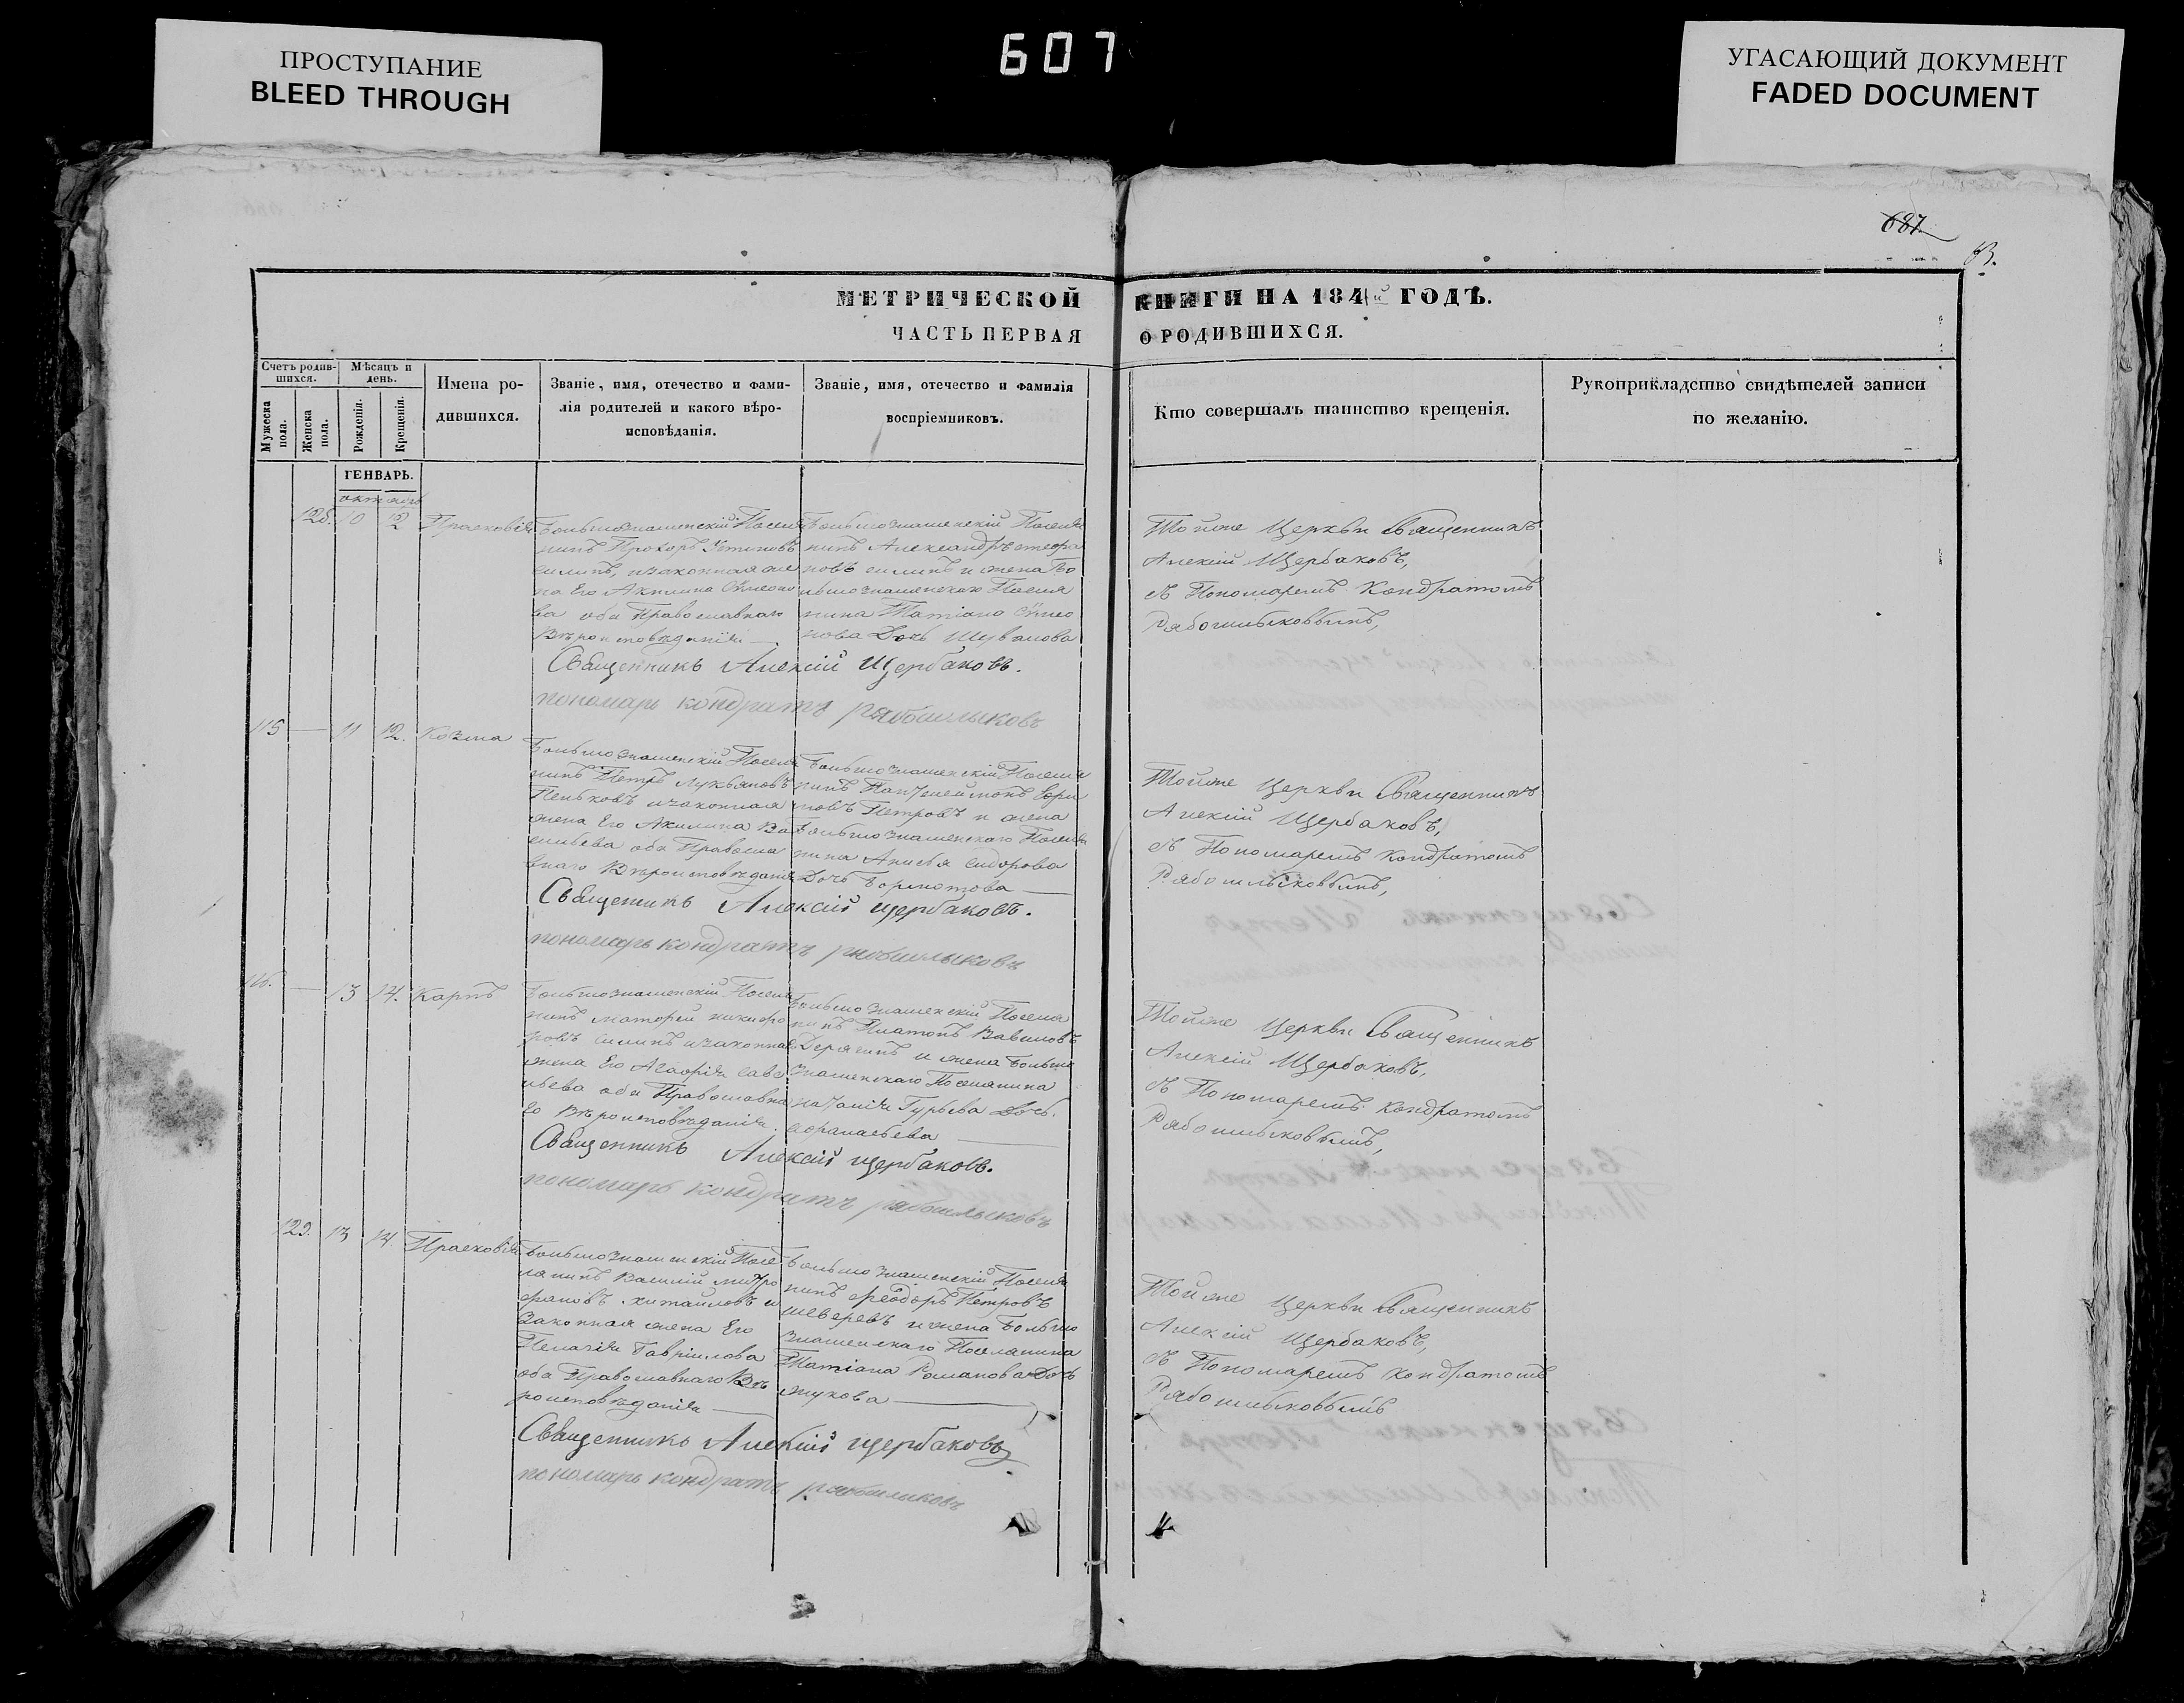 ПРОСТУПАНИЕ
BLEED THROUGH
607
УГАСАЮЩИЙ ДОКУМЕНТ
FADED DOCUMENT
687
МЕТРИЧЕСКОЙ КНИГИ НА 184 й ГОДЪ.
ЧАСТЬ ПЕРВАЯ О РОДИВШИХСЯ.
Счетъ родив-
шихся.
Мужеска
пола.
Женска
пола.
Мѣсяцъ и
день.
Рожденія.
Крещенія.
Имена ро-
дившихся.
Званіе, имя, отечество и фами-
лія родителей и какого вѣро-
исповѣданія.
Званіе, имя, отечество и фамилія
воспріемниковъ.
Кто совершалъ таинство крещенія.
Рукоприкладство свидѣтелей записи
по желанію.
ГЕНВАРЬ.
128. 10 12 Прасковія
Большознаменскій Поселя
нинъ Прохоръ Устиновъ
силинъ, и законная же
на Его Акилина Сѵмеоно
ва оба Православнаго
Вѣроисповѣданія
Большознаменскій Поселя
нинъ Александръ стефа
новъ силинъ и жена Бо
льшознаменскаго Поселя
нина Татіана Сѵмео
нова Дочь Шувалова
Тойже Церкви Священникъ
Алексій Щербаковъ,
съ Пономаремъ Кондратомъ
Рябошлыковымъ,
Священникъ Алексій Щербаковъ.
пономарь кондратъ рябошлыковъ
115 — 11 12. Козма
Большознаменскій Поселя
нинъ Петръ Лукьяновъ
Пеньковъ и законная
жена Его Акилина Ва
сильева оба Правосла
внаго Вѣроисповѣданія
Большознаменскій Поселя
нинъ Пантелеймонъ
новъ Петровъ и жена
Большознаменскаго Поселя
нина Анисья сидорова
Дочь Бормотова
Тойже Церкви Священникъ
Алексій Щербаковъ,
съ Пономаремъ Кондратомъ
Рябошлыковымъ,
Священникъ Алексій щербаковъ.
пономарь кондратъ рябошлыковъ
116. — 13 14. Карпъ
Большознаменскій Поселя
нинъ никифо
ровъ силинъ и законная
жена Его Агафія саве
льева оба Православна
го Вѣроисповѣданія.
Большознаменскій Поселя
нинъ Платонъ Вавиловъ
и жена Большо
знаменскаго Поселянина
Гурьева Дочь
афанасьева
Тойже Церкви Священникъ
Алексій Щербаковъ,
съ Пономаремъ Кондратомъ
Рябошлыковымъ,
Священникъ Алексій щербаковъ.
пономарь кондратъ рябошлыковъ
129. 13 14 Прасковія
Большознаменскій Посе
лянинъ Василій митро
фановъ и
Законная жена Его
Пелагія Гавріилова
оба Православнаго Вѣ
роисповѣданія
Большознаменскій Поселя
нинъ Феодоръ Петровъ
шеверевъ и жена Большо
знаменскаго Поселянина
Татіана Романова Дочь
жукова
Тойже Церкви Священникъ
Алексій Щербаковъ,
съ Пономаремъ Кондратомъ
Рябошлыковымъ
Священникъ Алексій щербаковъ
пономарь кондратъ рябошлыковъ